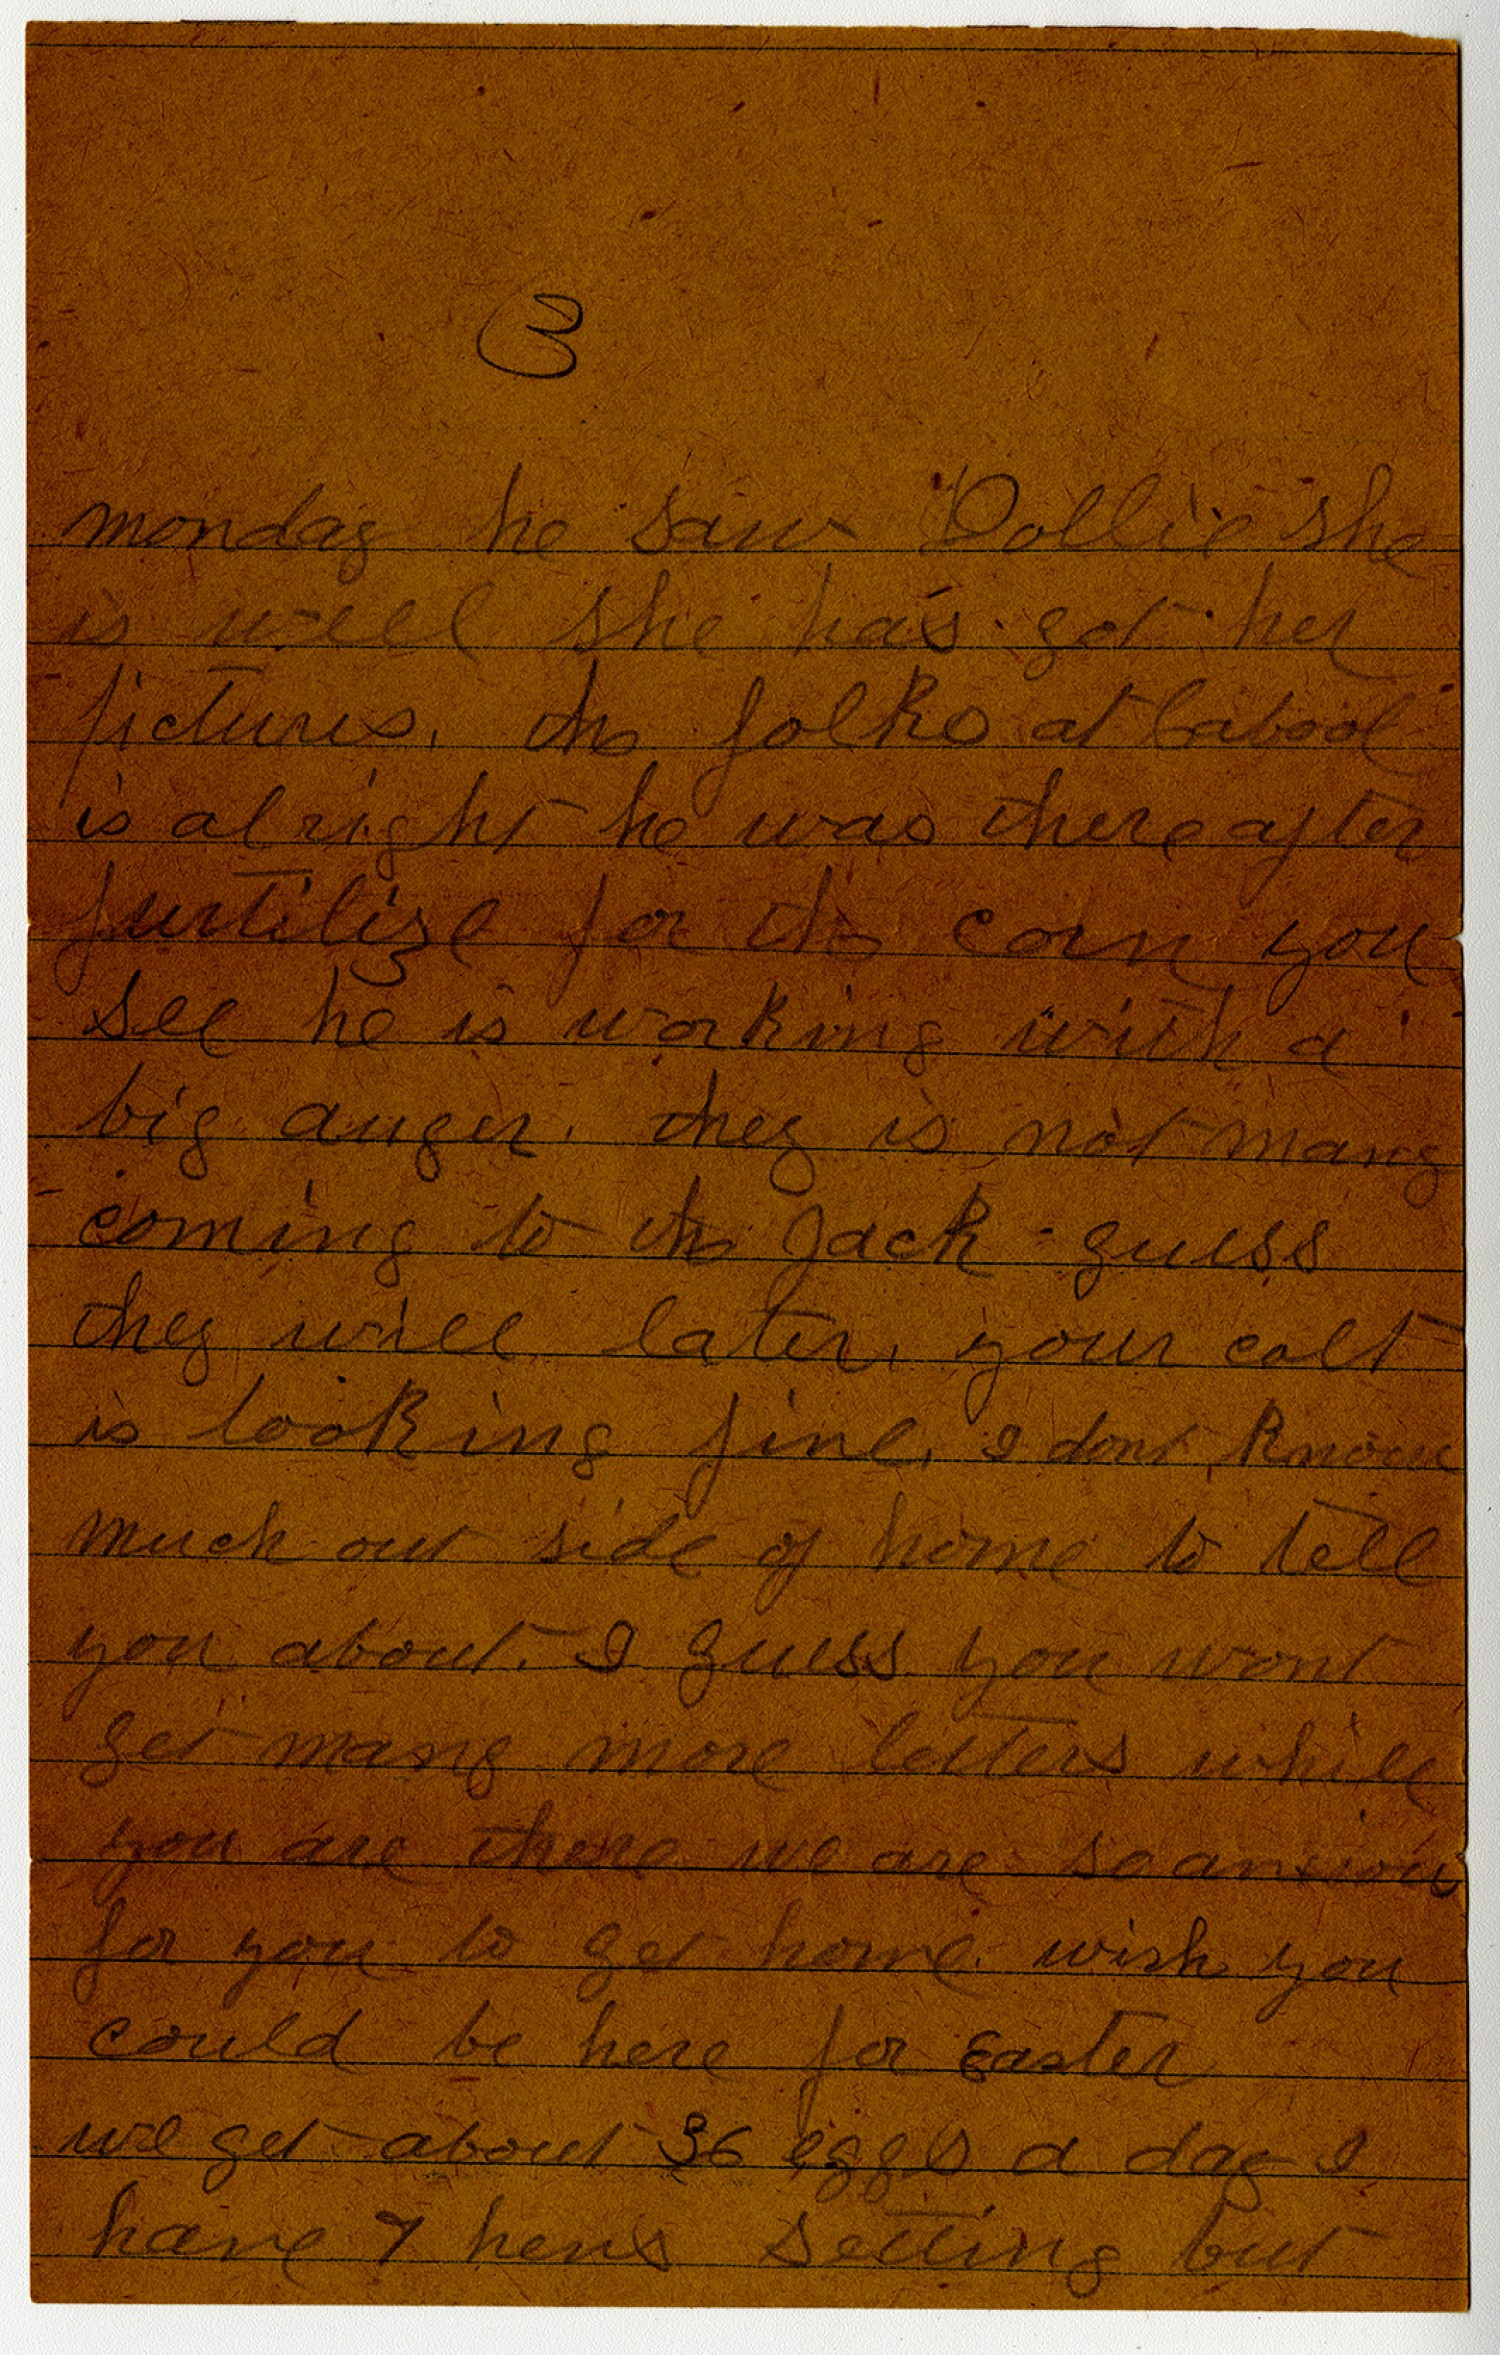 3
monday he saw Dollie she
is well she has got her
pictures. the folks at Cabool
is alright he was there after
furtilize for the corn you
see he is working with a
big auger. they is not many
coming to the Jack guess
they will later. your colt
is looking fine. I dont know
much out side of home to tell
you about. I guess you wont
get many more letters while
you are there we are so anxious
for you to get home. wish you
could be here for Easter
we get about 36 eggs a day I
have 7 hens setting but